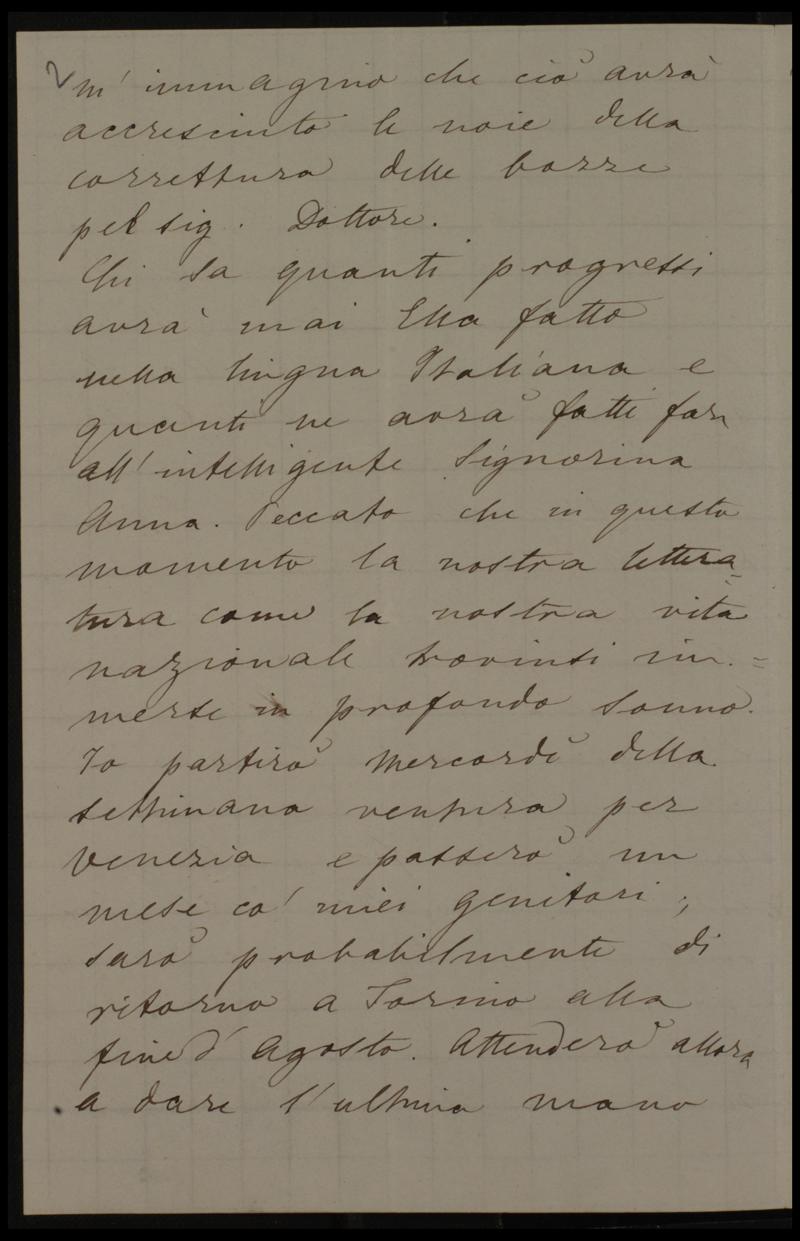 2
m' immagino che ciò avrà
accresciuto le noie della
correttura delle bozze
pel sig. Dottore.
Chi sa quanti progressi
avrà mai Ella fatto
nella lingua Italiana e
quanti ne avrà fatti far
all' intelligente Signorina
Anna. Peccato che in questo
momento la nostra lettera-
tura come la nostra vita
nazionale trovinsi im=
merse in profondo sonno.
Io partirò Mercordì della
settimana ventura per
Venezia e passerò un
mese co' miei genitori;
sarò probabilmente di
ritorno a Torino alla
fine d' Agosto. Attenderò allora
a dare l' ultima mano